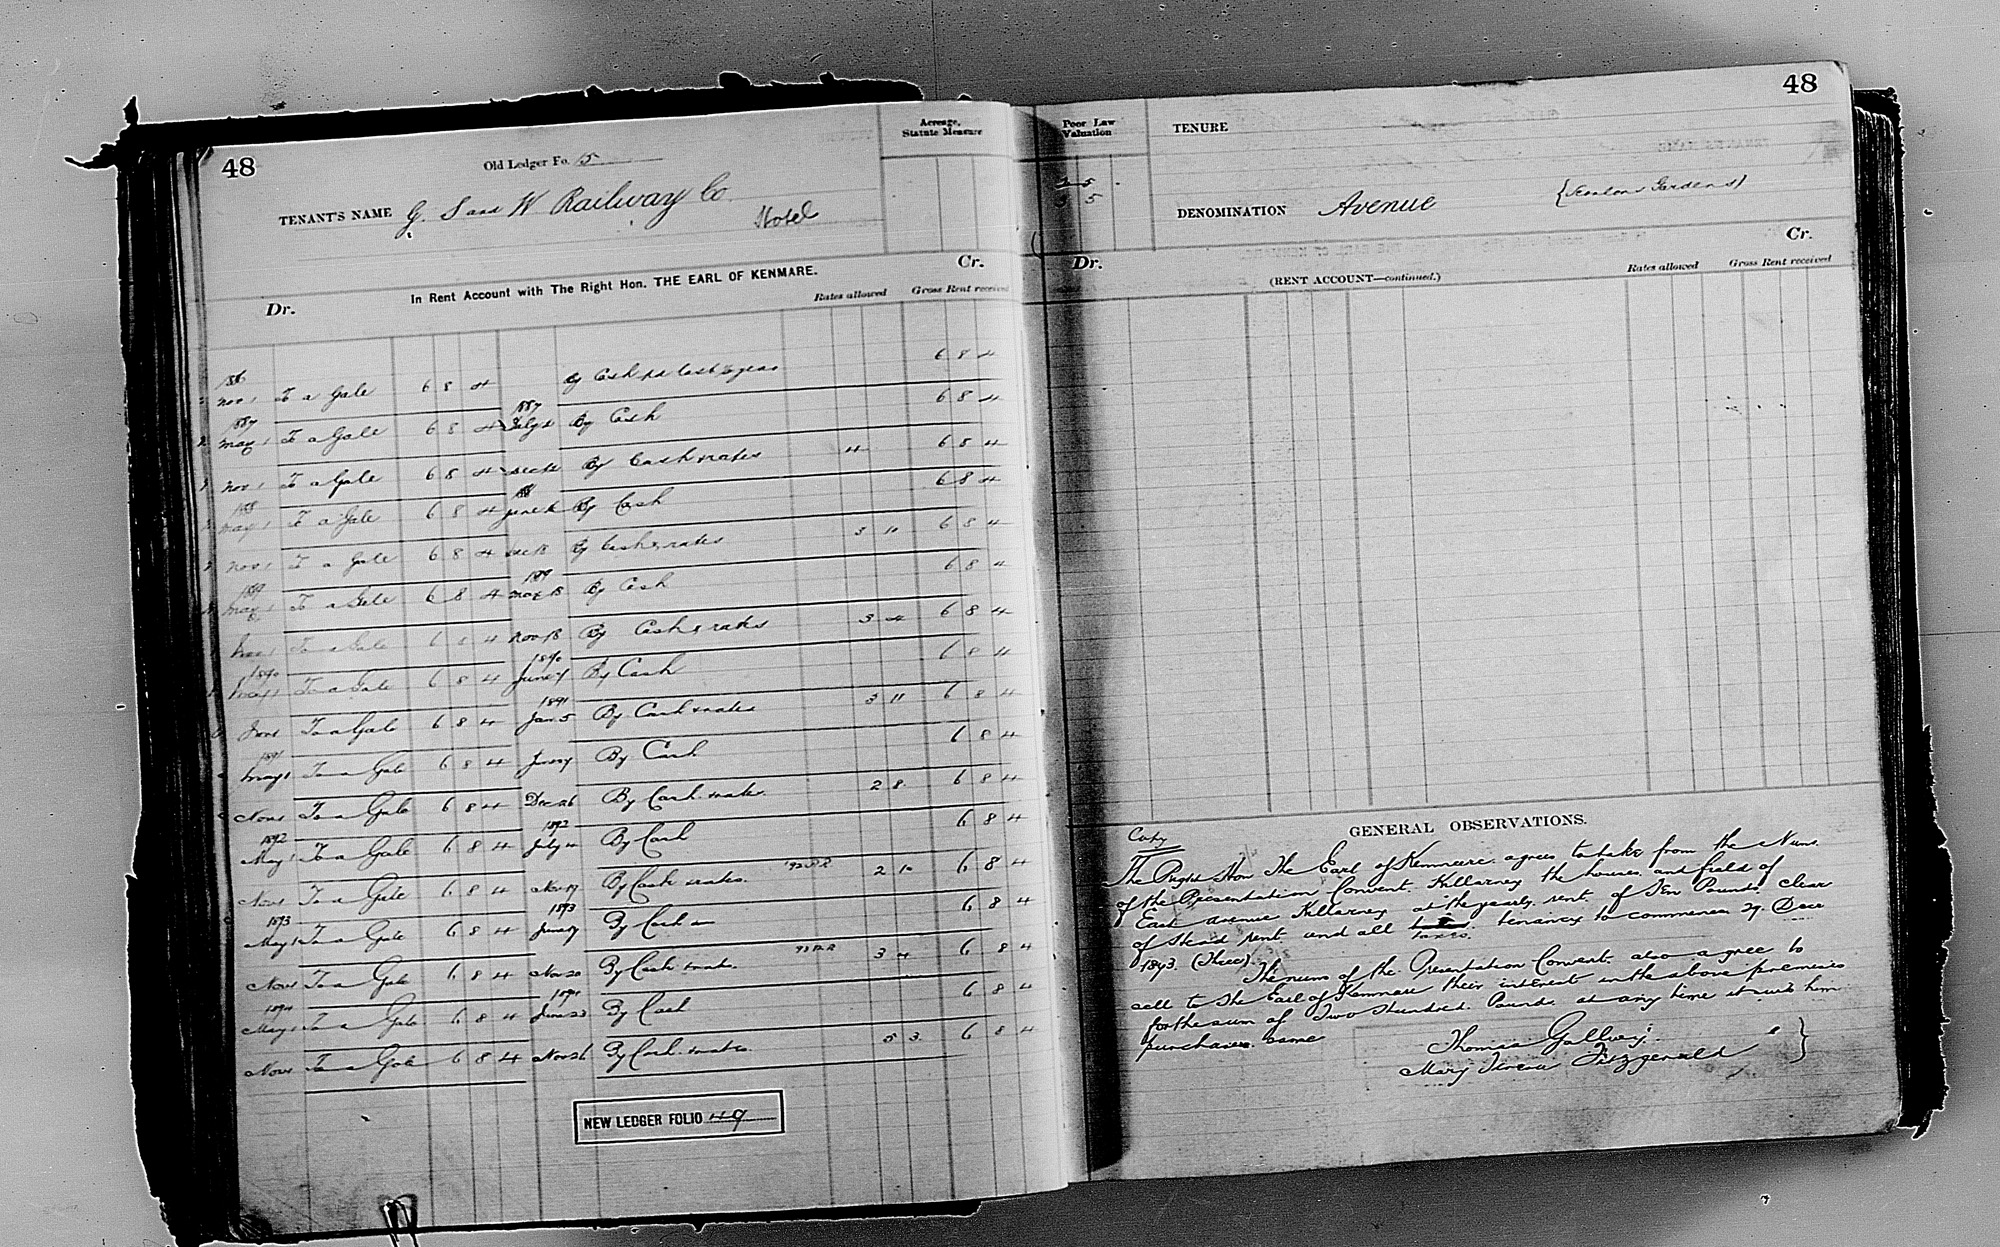 48
Old Ledger Fo. 15
Acreage,
Statute Measure
TENANT'S NAME G. S and W Railway Co.
Hotel
In Rent Account with The Right Hon. THE EARL OF KENMARE.
Dr. Cr.
Rates allowed Gross Rent received
1886
Nov 1 To a Gale 6 8 4 By Cash 6 8 4
1887 1887
May 1 To a Gale 6 8 4 July By Cash 6 8 4
Nov 1 To a Gale 6 8 4 Dec By Cash & rates 4 6 8 4
1888 88
May 1 To a Gale 6 8 4 June By Cash 6 8 4
Nov 1 To a Gale 6 8 4 Dec 18 By Cash & rates 3 11 6 8 4
1889 1889
May 1 To a Gale 6 8 4 May 18 By Cash 6 8 4
Nov 1 To a Gale 6 8 4 Nov 18 By Cash & rates 3 4 6 8 4
1890 1890
May 1 To a Gale 6 8 4 June 7 By Cash 6 8 4
1891
Nov 1 To a Gale 6 8 4 Jan 5 By Cash & rates 3 11 6 8 4
1891
May 1 To a Gale 6 8 4 June By Cash 6 8 4
Nov 1 To a Gale 6 8 4 Dec 26 By Cash & rates 2 8 6 8 4
1892 1892
May 1 To a Gale 6 8 4 July 4 By Cash 6 8 4
Nov 1 To a Gale 6 8 4 Nov 19 By Cash & rates. '92 P.R 2 10 6 8 4
1893 1893
May 1 To a Gale 6 8 4 June By Cash 6 8 4
Nov 1 To a Gale 6 8 4 Nov 20 By Cash & rates. 93 P.R 3 4 6 8 4
1894 1894
May 1 To a Gale 6 8 4 June 23 By Cash 6 8 4
Nov 1 To a Gale 6 8 4 Nov 26 By Cash & rates 5 3 6 8 4
NEW LEDGER FOLIO 49
48
Poor Law
Valuation
5
5
TENURE
DENOMINATION Avenue Gardens)
Dr. Cr.
(RENT ACCOUNT—continued.)
Rates allowed Gross Rent received
GENERAL OBSERVATIONS.
Copy
The Right Hon The Earl of Kenmare agrees to take from the Nuns
of the Presentation Convent Killarney the houses and field of
East avenue Killarney at the yearly rent of Ten Pounds clear
of Head rent and all taxes. tenancy to commence 29 Dece
1893. (Three)
The nuns of the Presentation Convent also agree to
sell to the Earl of Kenmare their interest in the above premises
for the sum of Two Hundred Pounds at any time it suits him
purchase same
Thomas Gallwey
Mary Teresa Fitzgerald }